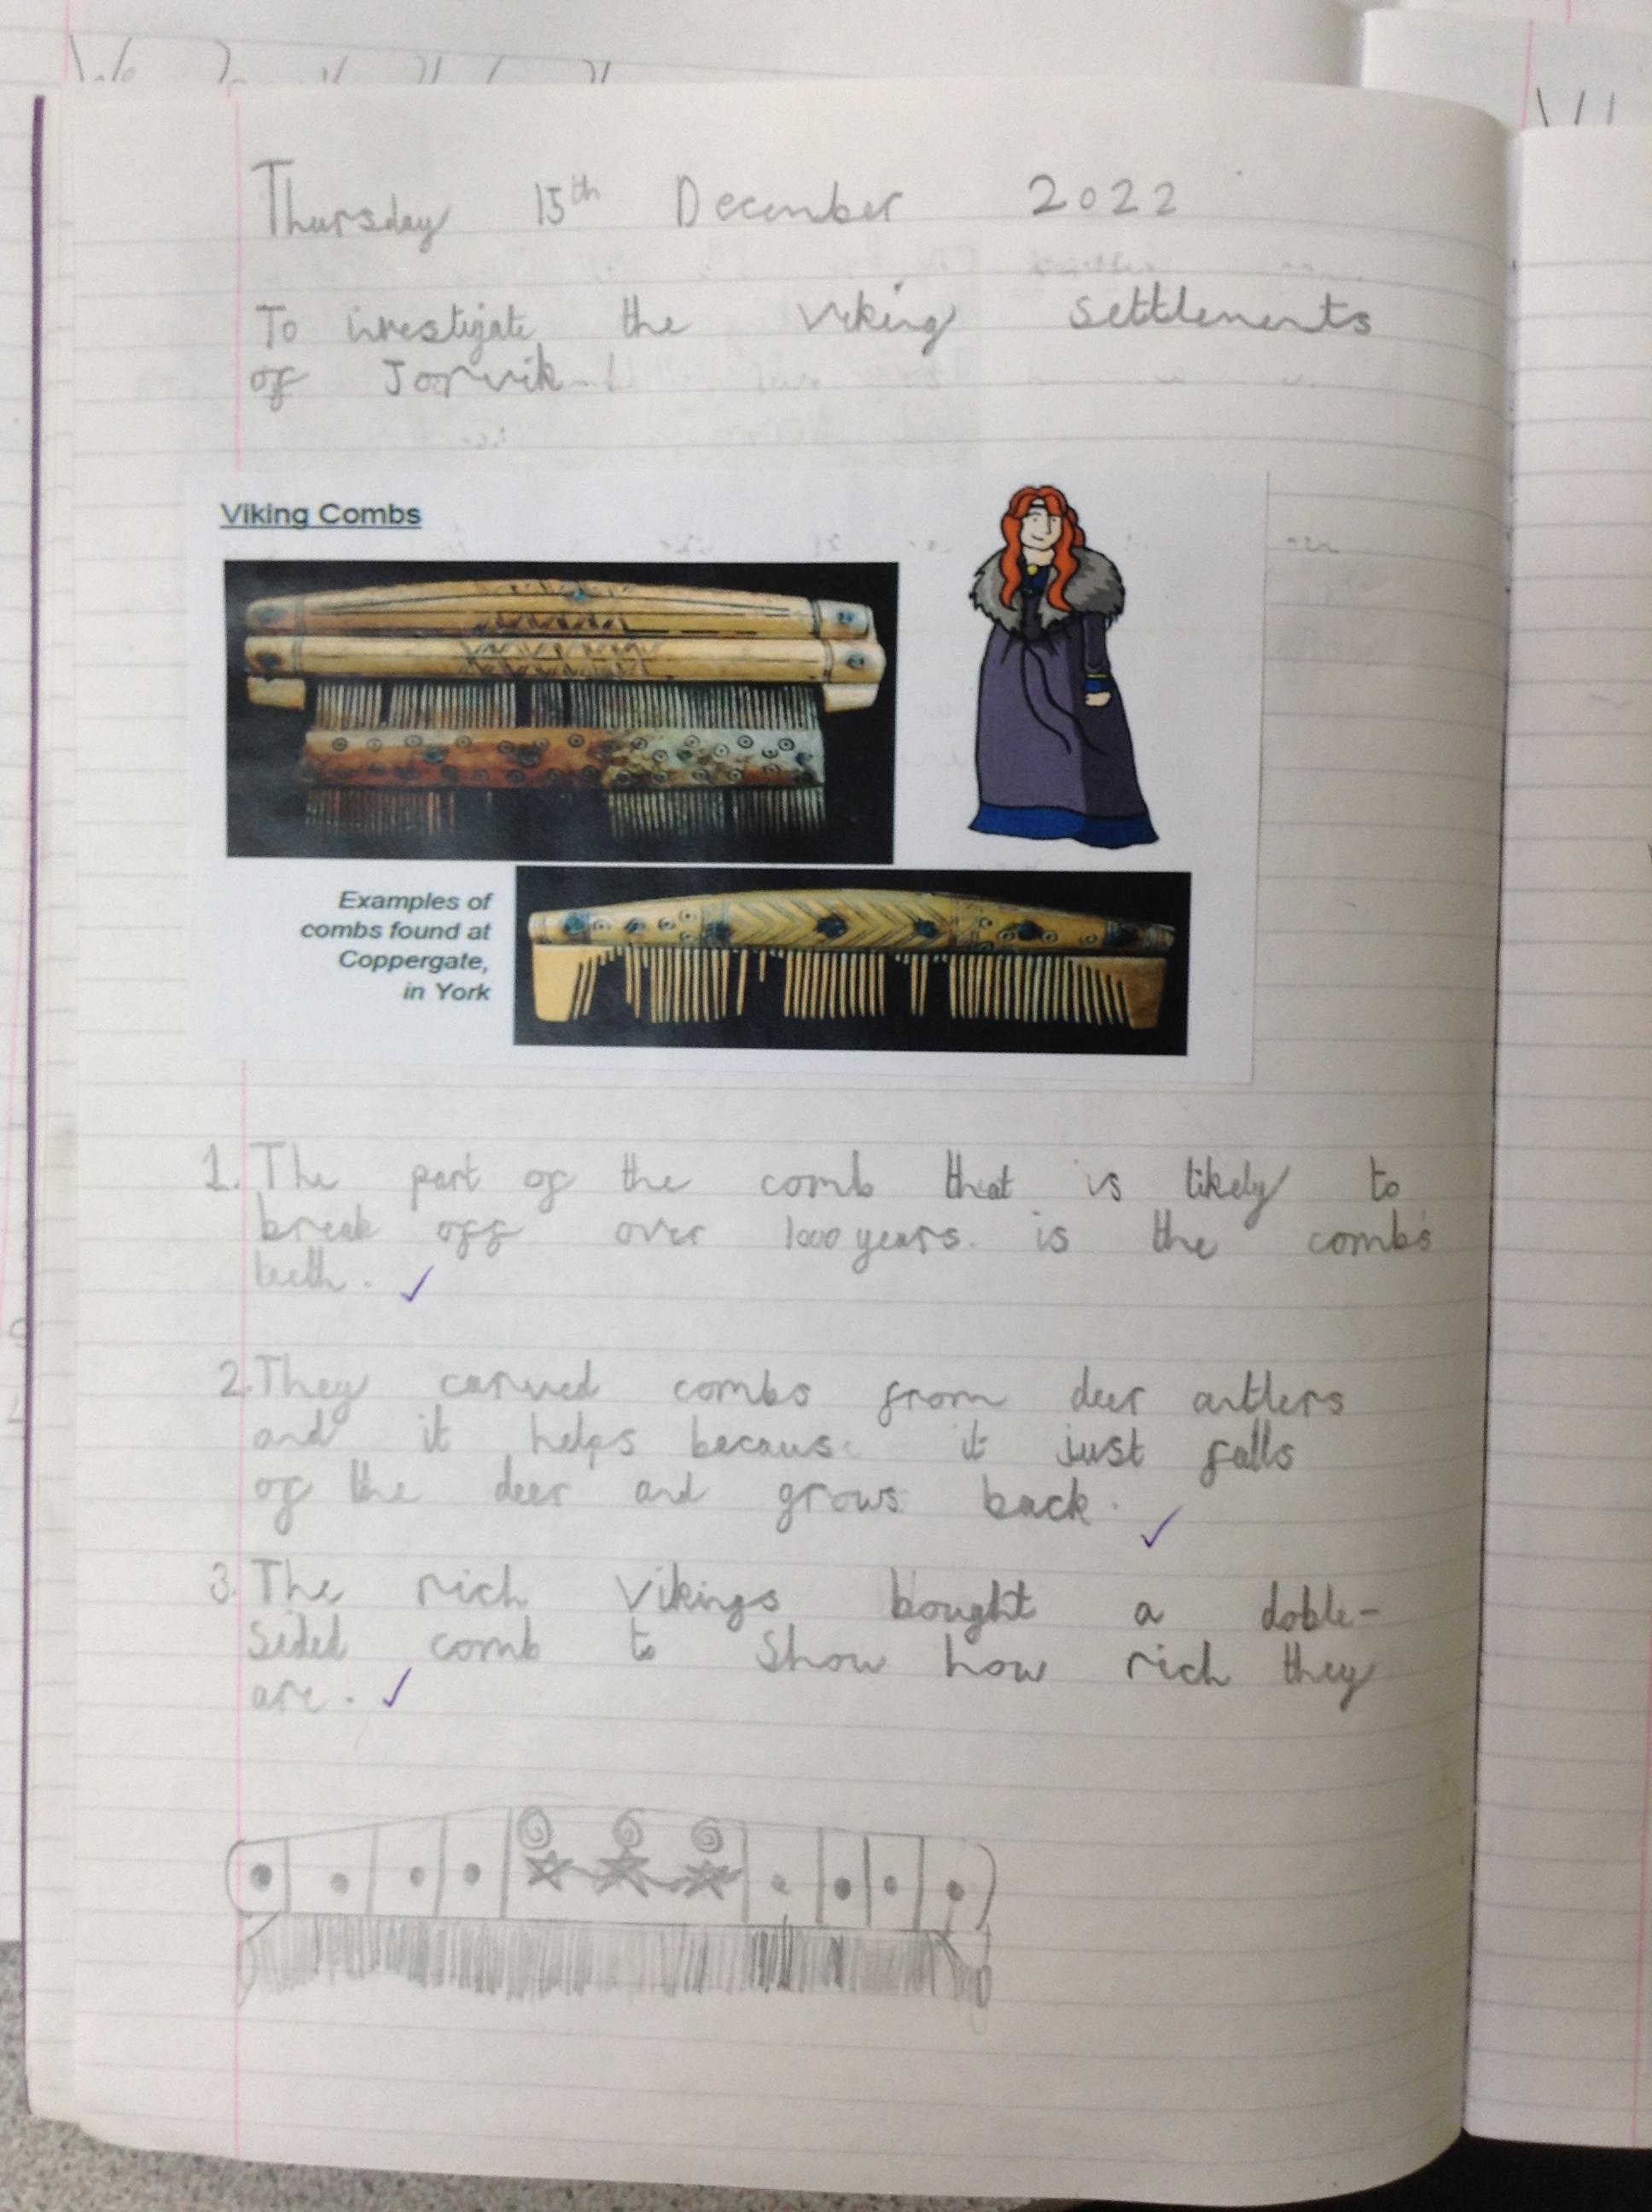 Thursday 15th December 2022
To investigate the Viking settlements
of Jorvik
Viking Combs
Examples of
combs found at
Coppergate,
in York
1. The part of the comb that is likely to
break off over 1000 years. is the combs
teeth.
2. They carved combs from deer antlers
and it helps because it just falls
of the deer and grows back.
3. The rich Vikings bought a doble-
sided comb to show how rich they
are.